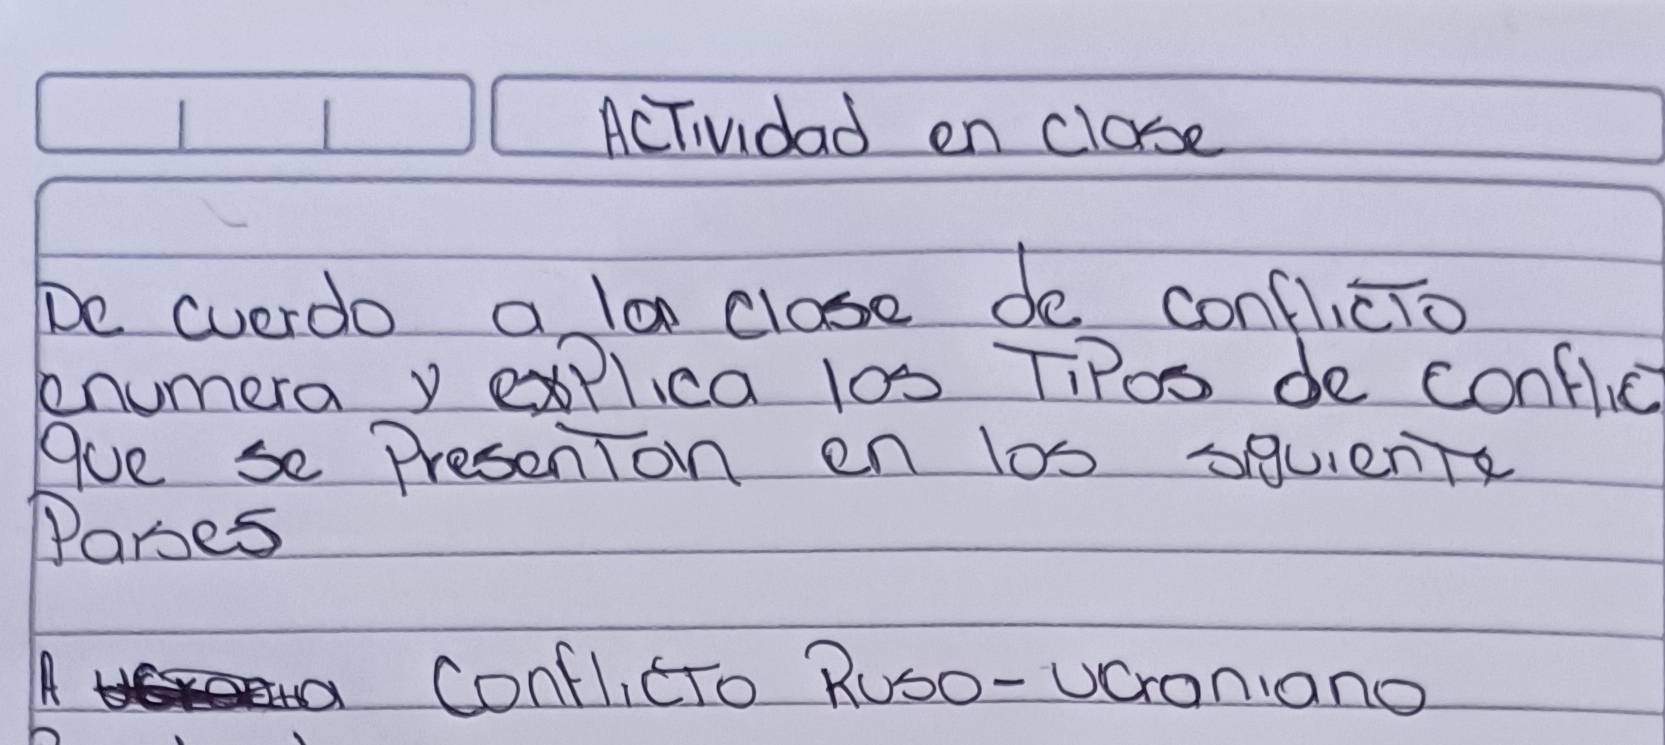 Actividad en clase
De cuerdo a la clase de conflicto
enumera y explica los Tipos de conflic
que se Presentan en los siguiente
Paises
A Conflicto Ruso-Ucraniano